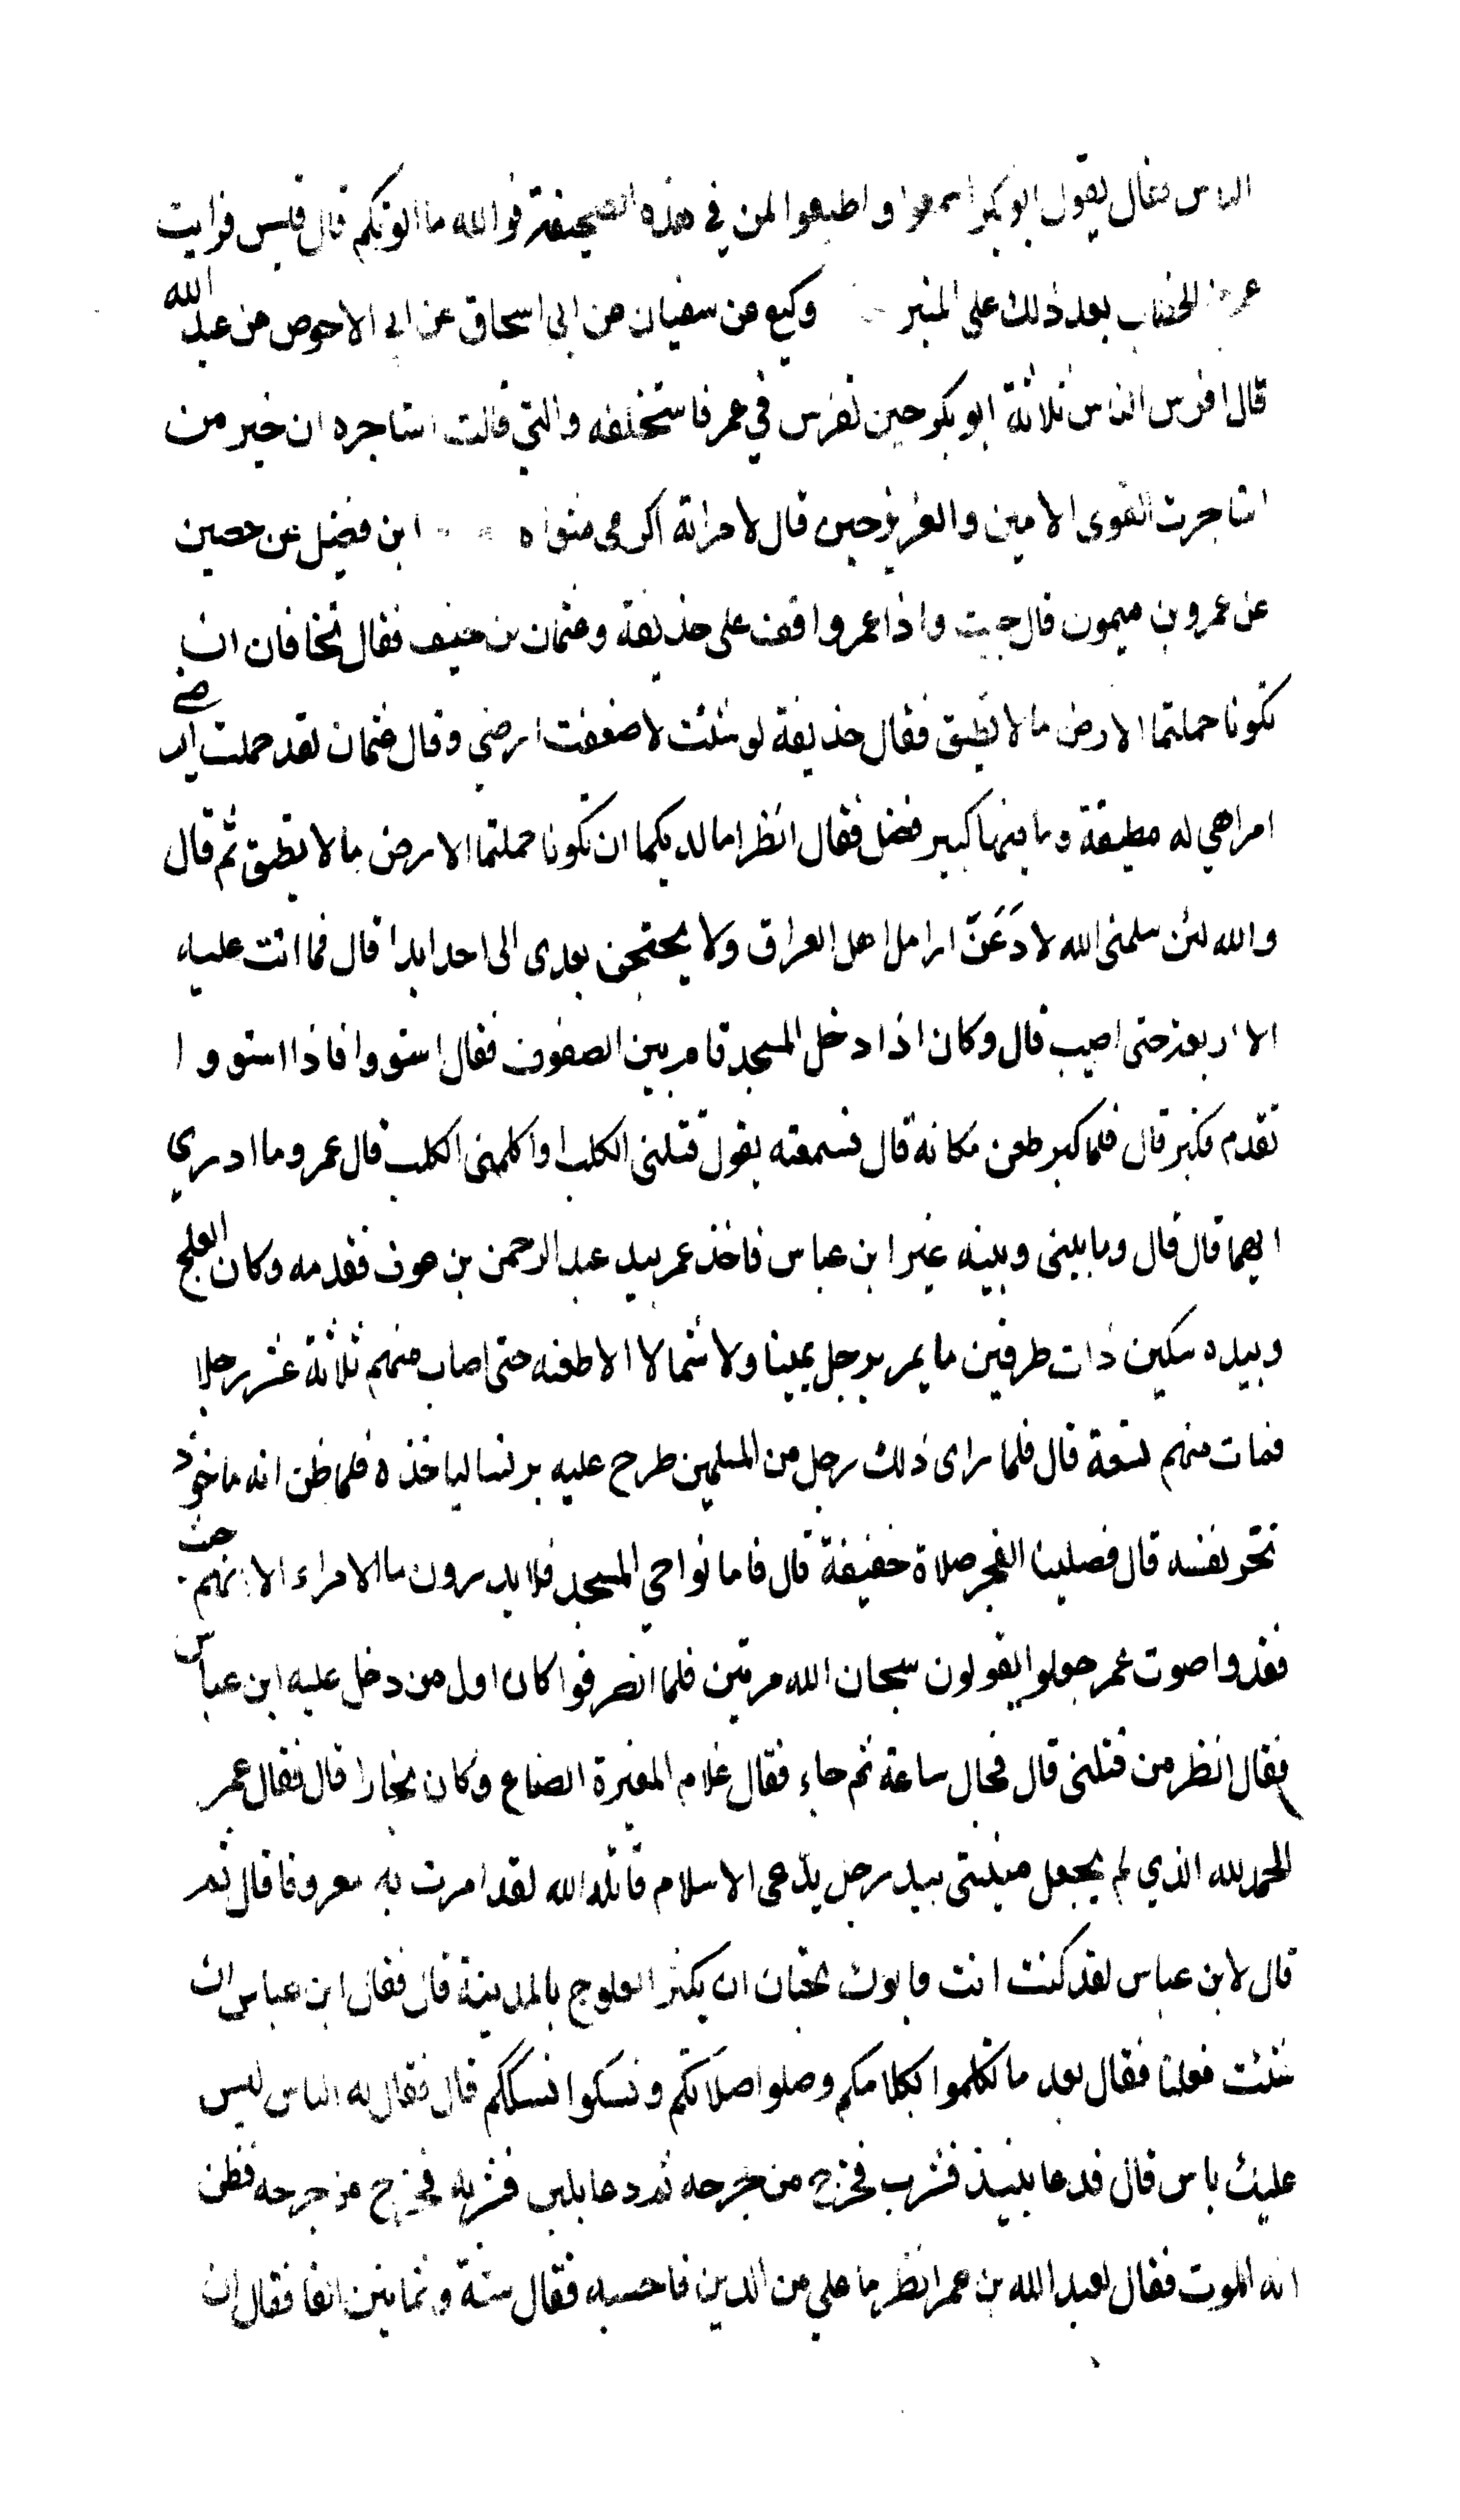 الناس فقال يقول ابو بكر اسمعوا واطيعوا لمن في هذه الصحيفة فوالله ما الوتكم قال قيس فرايت
عمر بن الخطاب بعد ذلك على المنبر وكيع عن سفيان عن ابي اسحاق عن ابي الاحوص عن عبد الله
قال افرس الناس ثلاثة ابو بكر حين تفرس في عمر فاستخلفه والتي قالت استاجره ان خير من
استاجرت القوى الامين والعزيز حين قال لامراته اكرمي مثواه ابن فضيل عن حصين
عن عمرو بن ميمون قال جيت واذا عمر واقف على حذيفة وعثمان بن حنيف فقال تخافان ان
تكونا حملتما الارض ما لا تطيق فقال حذيفة لو شئت لاضعفت ارضي وقال عثمان لقد حملت ارضي
امرا هي له مطيقة وما فيها كبير فضل فقال انظرا ما لديكما ان تكونا حملتما الارض ما لا تطيق ثم قال
والله لئن سلمنى الله لادَعَنّ ارامل اهل العراق ولا يحتجن بعدى الى احد ابدا قال فما اتت عليه
الا اربعة حتى اصيب قال وكان اذا دخل المسجد قام بين الصفوف فقال استووا فاذا استووا
تقدم فكبر قال فلما كبر طعن مكانه قال فسمعته يقول قتلنى الكلب او اكلنى الكلب قال عمرو ما ادري
ايهما قال قال وما بينى وبينه غير ابن عباس فاخذ عمر بيد عبد الرحمن بن عوف فقدمه وكان العلج
وبيده سكين ذات طرفين ما يمر برجل يمينا ولا شمالا الا طعنه حتى اصاب منهم ثلاثة عشر رجلا
فمات منهم تسعة قال فلما راى ذلك رجل من المسلمين طرح عليه برنسا لياخذه فلما ظن انه ماخوذ
نحر نفسه قال فصلينا الفجر صلاة خفيفة قال فاما نواحي المسجد فلا يدرون ما الامر الا انهم حيث
فقدوا صوت عمر جعلوا يقولون سبحان الله مرتين فلما انصرفوا كان اول من دخل عليه ابن عباس
فقال انظر من قتلنى قال فجال ساعة ثم جاء فقال غلام المغيرة الصناع وكان نجارا قال فقال عمر
الحمد لله الذي لم يجعل منيتى بيد رجل يدّعى الاسلام قاتله الله لقد امرت به معروفا قال ثم
قال لابن عباس لقد كنت انت وابوك تحبان ان يكثر العلوج بالمدينة قال فقال ابن عباس ان
شئت فعلنا فقال بعد ما تكلموا بكلامكم وصلوا صلاتكم ونسكوا نسككم قال فقال له الناس ليس
عليك باس قال فدعا بنبيذ فشرب فخرج من جرحه ثم دعا بلبن فشربه فخرج من جرحه فظن
انه الموت فقال لعبد الله بن عمر انظر ما علي من الدين فاحسبه فقال ستة وثمانين الفا فقال ان